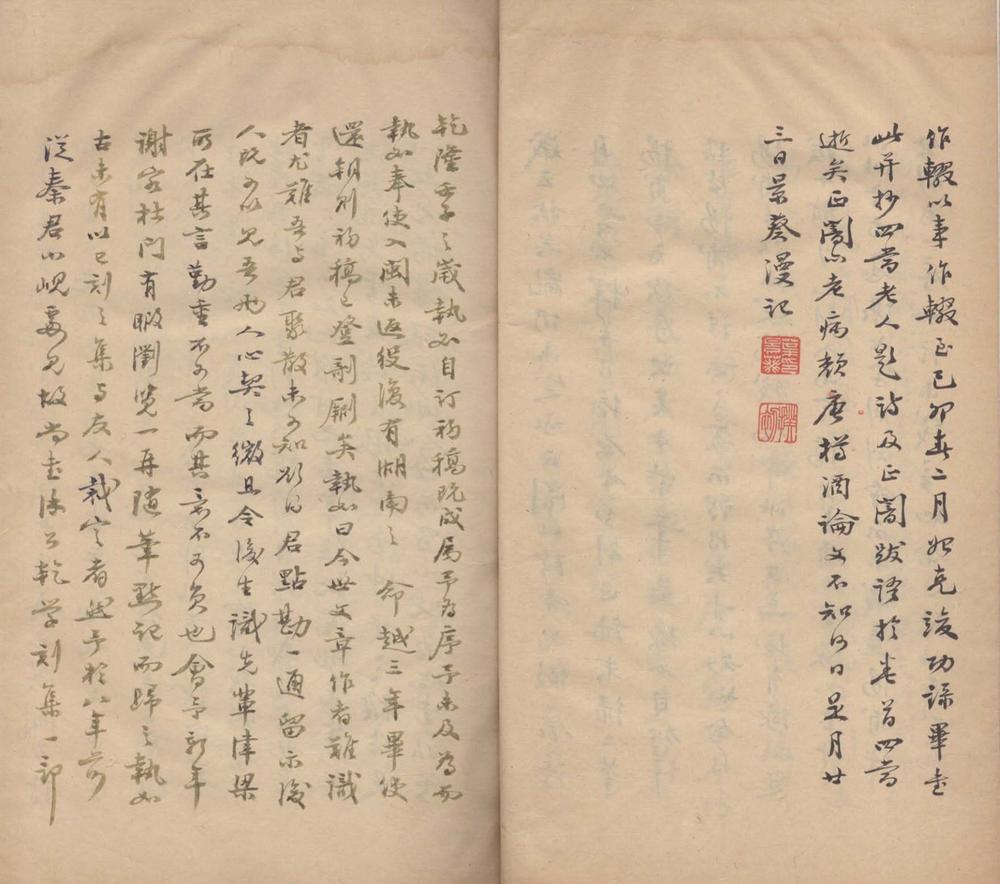 作輟以事作輟至己卯春二月始克竣功録畢書
此并抄四當老人題詩及正闇跋語於卷首四當
逝矣正闇亦老病頹唐樽酒論文不知何日是月廿
三日景葵漫記
葉景葵印
揆初
乾隆壬子之歲執如自訂初稿既成属予為序予未及為而
執如奉使入闽未返役復有湖南之 命越三年畢使
還朝則初稿已登剞劂矣執如曰今世文章作者難識
者尤難吾与君聚散未可知欲得君點勘一通留示後
人既可以見吾兩人心契之微且令後生識先輩津梁
所在其言勤重不可當而其意不可負也會予新年
謝客杜門有暇瀏覽一再隨筆點記而歸之執如
古未有以已刻之集与友人裁定者然予於八年前
從秦君小峴要見故尚書徐公乾学刻集一部